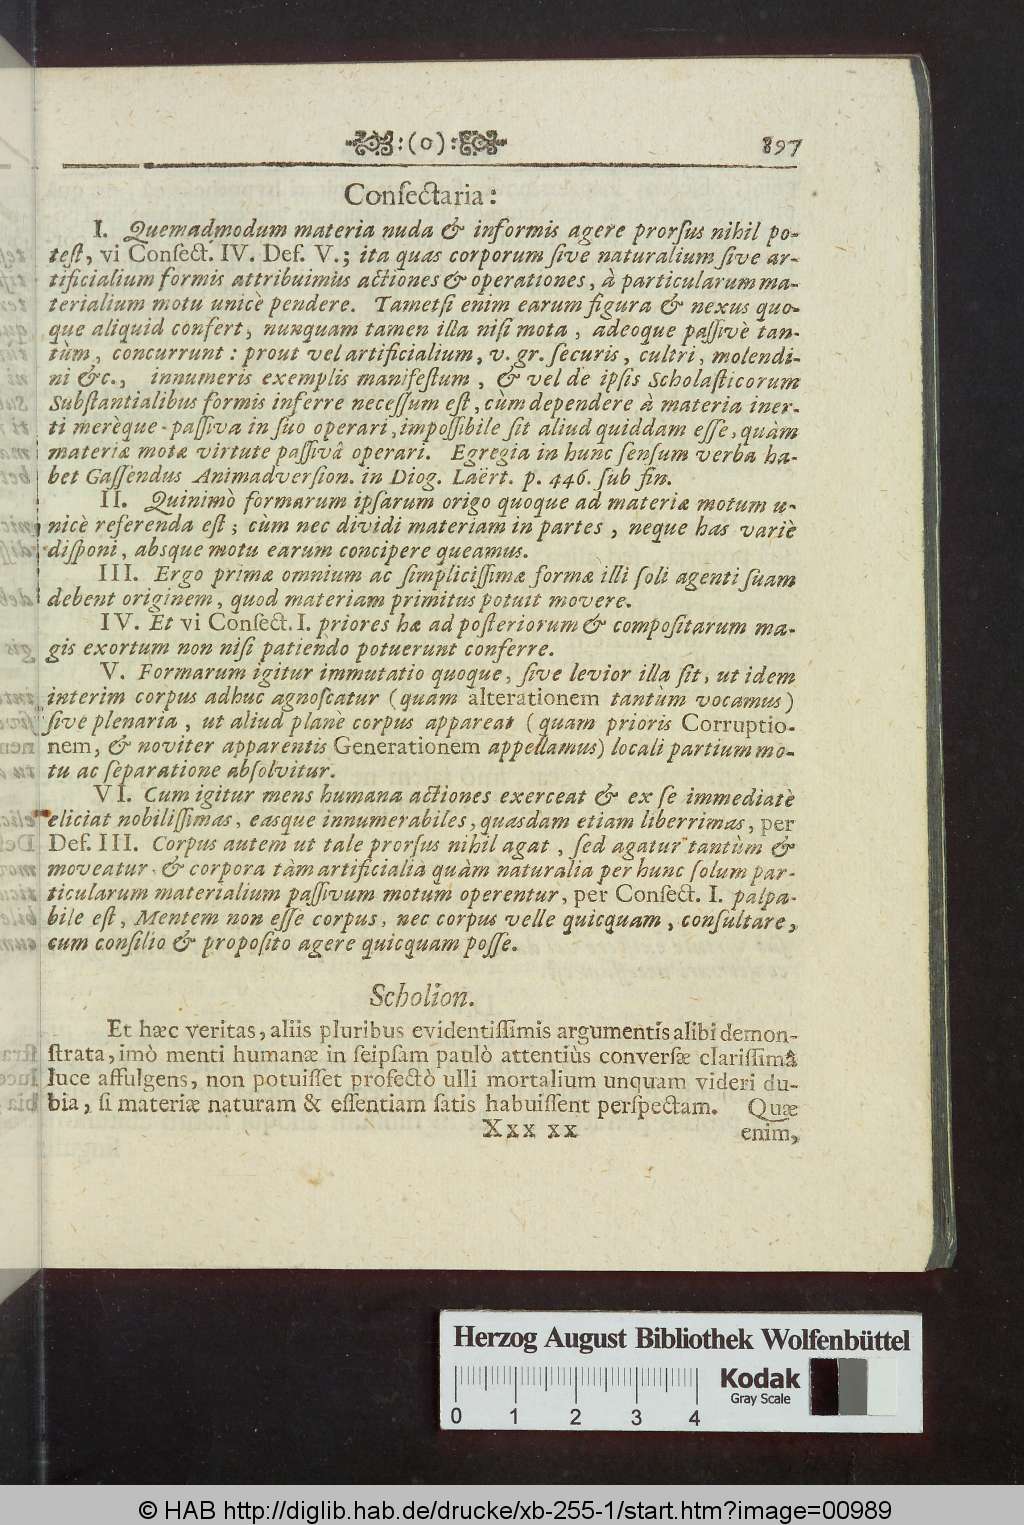 :(o): 897
Conſectaria:
I. Quemadmodum materia nuda & informis agere prorſus nihil po-
teſt, vi Conſect. IV. Def. V.; ita quas corporum ſive naturalium ſive ar-
tificialium formis attribuimus actiones & operationes, à particularum ma-
terialium motu unicè pendere. Tametſi enim earum figura & nexus quo-
que aliquid confert, nunquam tamen illa niſi mota, adeoque paſſivè tan-
tùm, concurrunt: prout vel artificialium, v. gr. ſecuris, cultri, molendi-
ni &c., innumeris exemplis manifeſtum, & vel de ipſis Scholaſticorum
Subſtantialibus formis inferre neceſſum eſt, cùm dependere à materia iner-
ti merèque-paſſiva in ſuo operari, impoſſibile ſit aliud quiddam eſſe, quàm
materiæ motæ virtute paſſivâ operari. Egregia in hunc ſenſum verba ha-
bet Gaſſendus Animadverſion. in Diog. Laërt. p. 446. ſub fin.
II. Quinimò formarum ipſarum origo quoque ad materiæ motum u-
nicè referenda eſt; cùm nec dividi materiam in partes, neque has variè
diſponi, absque motu earum concipere queamus.
III. Ergo primæ omnium ac ſimpliciſſimæ formæ illi ſoli agenti ſuam
debent originem, quod materiam primitus potuit movere.
IV. Et vi Conſect. I. priores hæ ad poſteriorum & compoſitarum ma-
gis exortum non niſi patiendo potuerunt conferre.
V. Formarum igitur immutatio quoque, ſive levior illa ſit, ut idem
interim corpus adhuc agnoſcatur (quam alterationem tantùm vocamus)
ſive plenaria, ut aliud planè corpus appareat (quam prioris Corruptio-
nem, & noviter apparentis Generationem appellamus) locali partium mo-
tu ac ſeparatione abſolvitur.
VI. Cum igitur mens humana actiones exerceat & ex ſe immediatè
eliciat nobiliſſimas, easque innumerabiles, quasdam etiam liberrimas, per
Def. III. Corpus autem ut tale prorſus nihil agat, ſed agatur tantùm &
moveatur, & corpora tàm artificialia quàm naturalia per hunc ſolum par-
ticularum materialium paſſivum motum operentur, per Conſect. I. palpa-
bile eſt, Mentem non eſſe corpus, nec corpus velle quicquam, conſultare,
cum conſilio & propoſito agere quicquam poſſe.
Scholion.
Et hæc veritas, aliis pluribus evidentiſſimis argumentis alibi demon-
ſtrata, imò menti humanæ in ſeipſam paulò attentiùs converſæ clariſſimâ
luce affulgens, non potuiſſet profectò ulli mortalium unquam videri du-
bia, ſi materiæ naturam & eſſentiam ſatis habuiſſent perſpectam. Quæ
Xxx xx enim,
Herzog August Bibliothek Wolfenbüttel
Kodak
Gray Scale
0 1 2 3 4
© HAB http://diglib.hab.de/drucke/xb-255-1/start.htm?image=00989